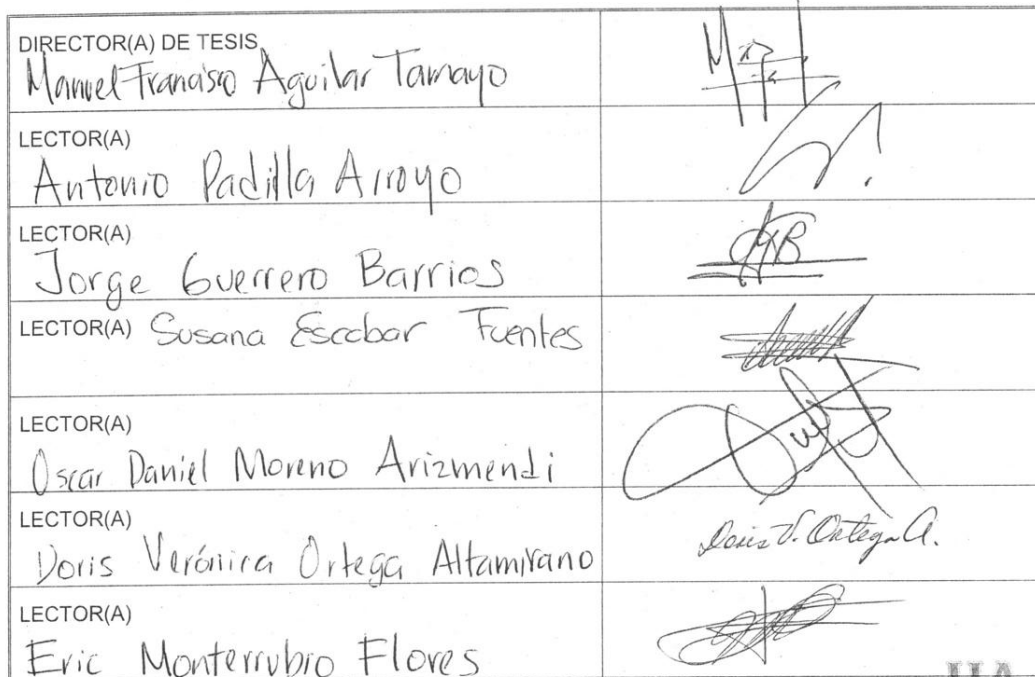 DIRECTOR(A) DE TESIS
Manuel Francisco Aguilar Tamayo
LECTOR(A)
Antonio Padilla Arroyo
LECTOR(A)
Jorge Guerrero Barrios
LECTOR(A) Susana Escobar Fuentes
LECTOR(A)
Oscar Daniel Moreno Arizmendi
LECTOR(A)
Doris Verónica Ortega Altamirano
Doris V. Ortega A.
LECTOR(A)
Eric Monterrubio Flores